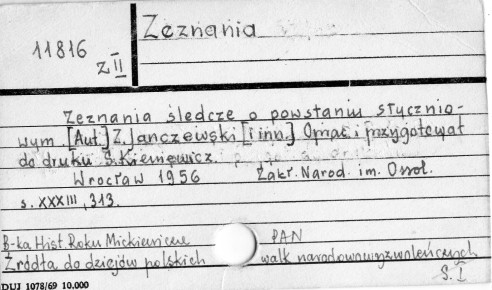 Zeznania
11816
Z II
Zeznania śledcze o powstaniu stycznio-
wym. [Aut.] Z. Janczewski [i inn.] Oprac. i przygotował
do druku S. Kieniewicz.
Wrocław 1956 Zakł. Narod. im. Ossol.
s. XXXIII, 313.
B-ka Hist. Roku Mickiewicz. PAN
Źródła do dziejów polskich walk narodowowyzwoleńczych
S. I
DUJ 1078/69 10.000